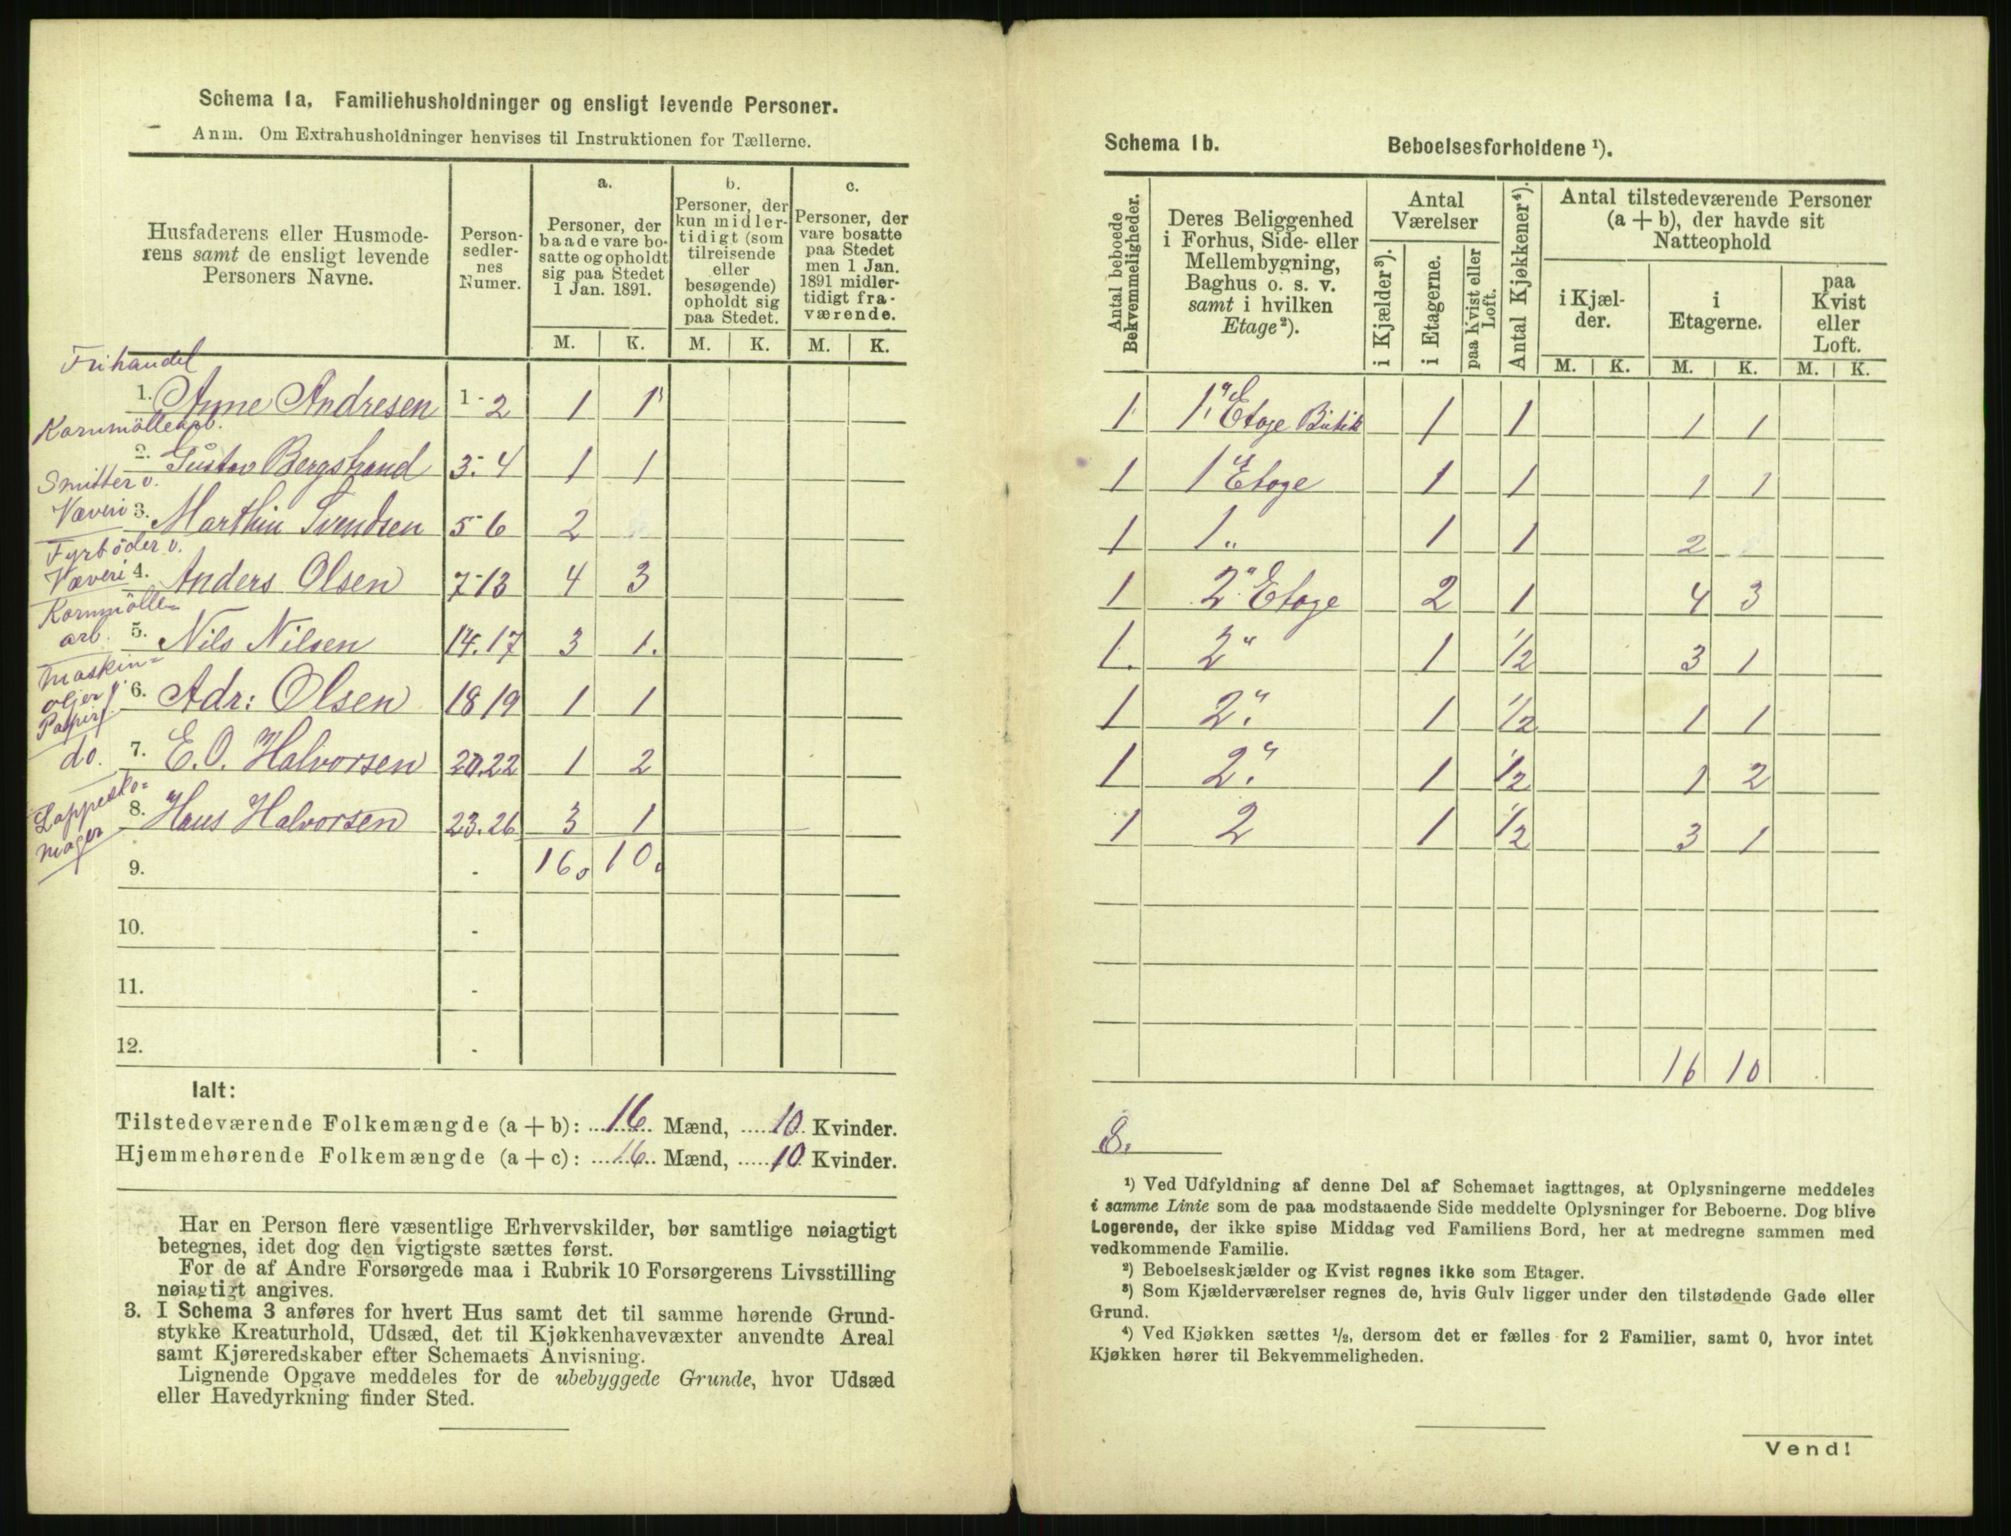 Schema 1a. Familiehusholdninger og ensligt levende Personer.
Anm. Om Extrahusholdninger henvises til Instruktionen for Tællerne.
Husfaderens eller Husmoderens samt de ensligt levende Personers Navne.
Personsedlernes Numer.
a. Personer, der baade vare bosatte og opholdt sig paa Stedet 1 Jan. 1891.
b. Personer, der kun midlertidigt (som tilreisende eller besøgende) opholdt sig paa Stedet.
c. Personer, der vare bosatte paa Stedet men 1 Jan. 1891 midlertidigt fraværende.
M. K. M. K. M. K.
Frihandel
1. Anne Andresen 1-2 1 1
Kornmöllearb.
2. Gustav Bergstrand 3-4 1 1
Smitter v. Væveri
3. Marthin Svendsen 5-6 2
Fyrböder v. Væveri
4. Anders Olsen 7-13 4 3
Kornmölle-arb.
5. Nils Nilsen 14.17 3 1.
Maskin-oljer Papirf
6. Adr: Olsen 18 19 1 1
do.
7. E. O. Halvorsen 20.22 1 2
Lappesko-mager
8. Hans Halvorsen 23.26 3 1
9. - 16. 10.
10. -
11. -
12. -
Ialt:
Tilstedeværende Folkemængde (a + b): 16 Mænd, 10 Kvinder.
Hjemmehørende Folkemængde (a + c): 16 Mænd, 10 Kvinder.
Har en Person flere væsentlige Erhvervskilder, bør samtlige nøiagtigt
betegnes, idet dog den vigtigste sættes først.
For de af Andre Forsørgede maa i Rubrik 10 Forsørgerens Livsstilling
nøiagtigt angives.
3. I Schema 3 anføres for hvert Hus samt det til samme hørende Grund-
stykke Kreaturhold, Udsæd, det til Kjøkkenhavevæxter anvendte Areal
samt Kjøreredskaber efter Schemaets Anvisning.
Lignende Opgave meddeles for de ubebyggede Grunde, hvor Udsæd
eller Havedyrkning finder Sted.
Schema 1b. Beboelsesforholdene ¹).
Antal beboede Bekvemmeligheder.
Deres Beliggenhed i Forhus, Side- eller Mellembygning, Baghus o. s. v. samt i hvilken Etage²).
Antal Værelser
i Kjælder³). i Etagerne. paa Kvist eller Loft.
Antal Kjøkkener⁴).
Antal tilstedeværende Personer (a + b), der havde sit Natteophold
i Kjælder. i Etagerne. paa Kvist eller Loft.
M. K. M. K. M. K.
1 1" Etage Butik 1 1 1 1
1 1" Etage 1 1 1 1
1 1 " 1 1 2
1 2" Etage 2 1 4 3
1. 2" 1 1/2 3 1
1 2." 1 1/2 1 1
1 2." 1 1/2 1 2
1 2 1 1/2 3 1
16 10
8.
¹) Ved Udfyldning af denne Del af Schemaet iagttages, at Oplysningerne meddeles
i samme Linie som de paa modstaaende Side meddelte Oplysninger for Beboerne. Dog blive
Logerende, der ikke spise Middag ved Familiens Bord, her at medregne sammen med
vedkommende Familie.
²) Beboelseskjælder og Kvist regnes ikke som Etager.
³) Som Kjælderværelser regnes de, hvis Gulv ligger under den tilstødende Gade eller
Grund.
⁴) Ved Kjøkken sættes ½, dersom det er fælles for 2 Familier, samt 0, hvor intet
Kjøkken hører til Bekvemmeligheden.
Vend!